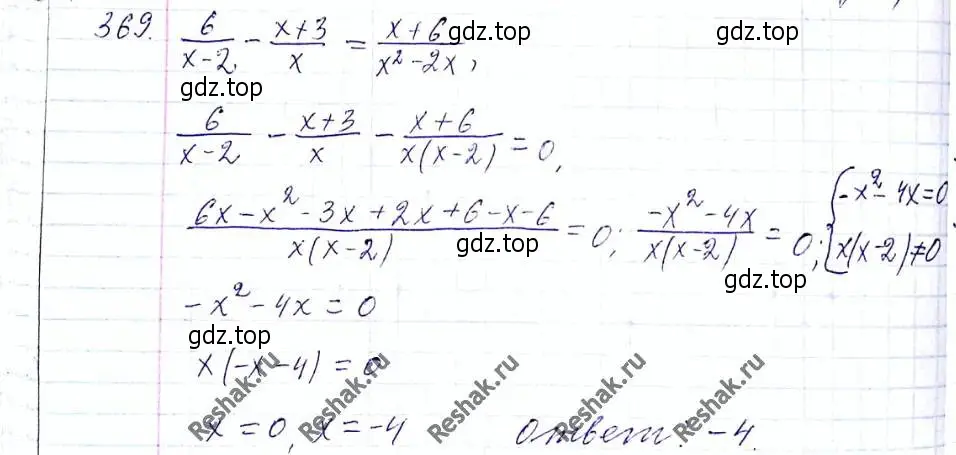 369. 6/(x-2) - (x+3)/x = (x+6)/(x² - 2x),
gdz.top gdz.top gdz.top
6/(x-2) - (x+3)/x - (x+6)/(x(x-2)) = 0,
(6x - x² - 3x + 2x + 6 - x - 6)/(x(x-2)) = 0; (-x² - 4x)/(x(x-2)) = 0; { -x² - 4x = 0
x(x-2) ≠ 0
gdz.top gdz.top
-x² - 4x = 0
gdz.top
x(-x-4) = 0
x = 0, x = -4 Ответ: -4.
Reshak.ru Reshak.ru Reshak.ru Reshak.ru